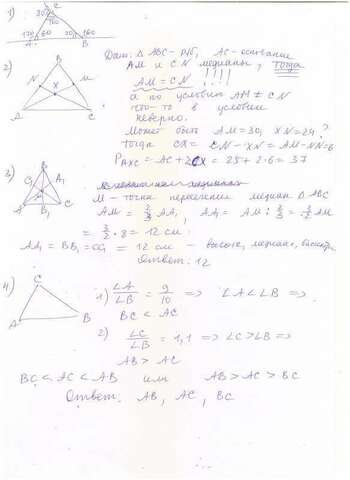 1)
C
30°
100
120 60 20 160
A B
2)
B
N M
X
A C
Дано: Δ ABC - р/б, AC - основание
AM и CN медианы, Тогда
AM = CN !!!!
а по условию AM ≠ CN
что-то в условии
неверно.
Может быть AM=30, XN=24, ?
тогда CX = CN - XN = AM - NN = 6
P AXC = AC + 2CX = 25 + 2·6 = 37
3)
B
C1 A1
M
A C
M - точка пересечения медиан Δ ABC
AM = 2/3 AA1, AA1 = AM : 2/3 = 3/2 AM
= 3/2 · 8 = 12 см
AA1 = BB1 = CC1 = 12 см - высота, медиана,
Ответ: 12
4)
C
A B
1) ∠A/∠B = 9/10 => ∠A < ∠B =>
BC < AC
2) ∠C/∠B = 1,1 => ∠C > ∠B =>
AB > AC
BC < AC < AB или AB > AC > BC
Ответ: AB, AC, BC